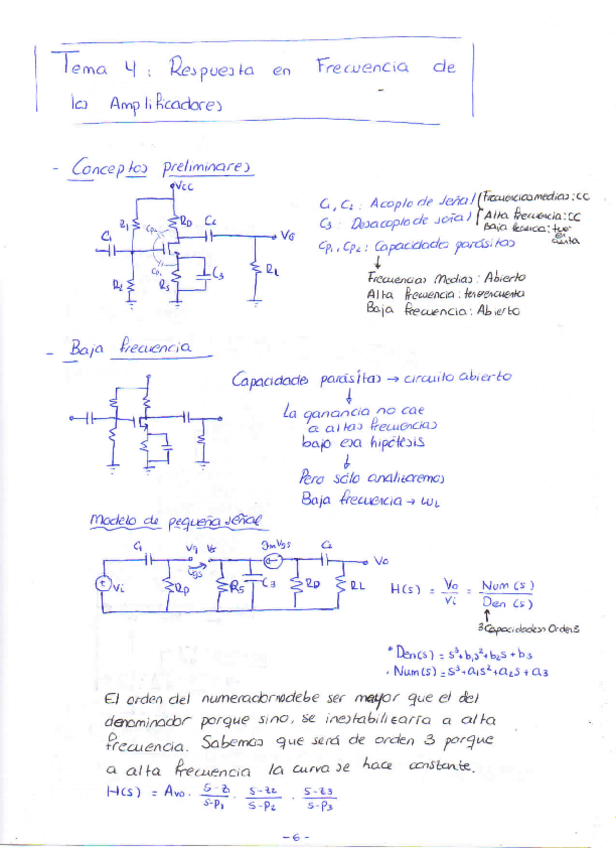 Tema 4 : Respuesta en Frecuencia de
los Amplificadores
- Conceptos preliminares
VCC
R1
Cp2
RD
C2
C1
Vo
Cp1
R2
RS
C3
RL
C1, C2 : Acoplo de señal
Frecuencias medias : CC
Alta frecuencia : CC
Baja frecuencia : tener en cuenta
C3 : Desacoplo de señal
Cp1, Cp2 : Capacidades parásitas
Frecuencias Medias : Abierto
Alta frecuencia : tener en cuenta
Baja frecuencia : Abierto
- Baja frecuencia
Capacidades parásitas → circuito abierto
La ganancia no cae
a altas frecuencias
bajo esa hipótesis
Pero sólo analizaremos
Baja frecuencia → ωL
Modelo de pequeña señal
C1
Vg
Vs
gmVgs
C2
Vo
Vgs
Vi
Rp
RS
C3
RD
RL
H(s) = Vo/Vi = Num(s)/Den(s)
3 Capacidades Orden 3
* Den(s) = s³+b1s²+b2s+b3
· Num(s) = s³+a1s²+a2s+a3
El orden del numerador no debe ser mayor que el del
denominador porque sino, se inestabilizaria a alta
frecuencia. Sabemos que será de orden 3 porque
a alta frecuencia la curva se hace constante.
H(s) = Avo · s-z1/s-p1 · s-z2/s-p2 · s-z3/s-p3
- 6 -